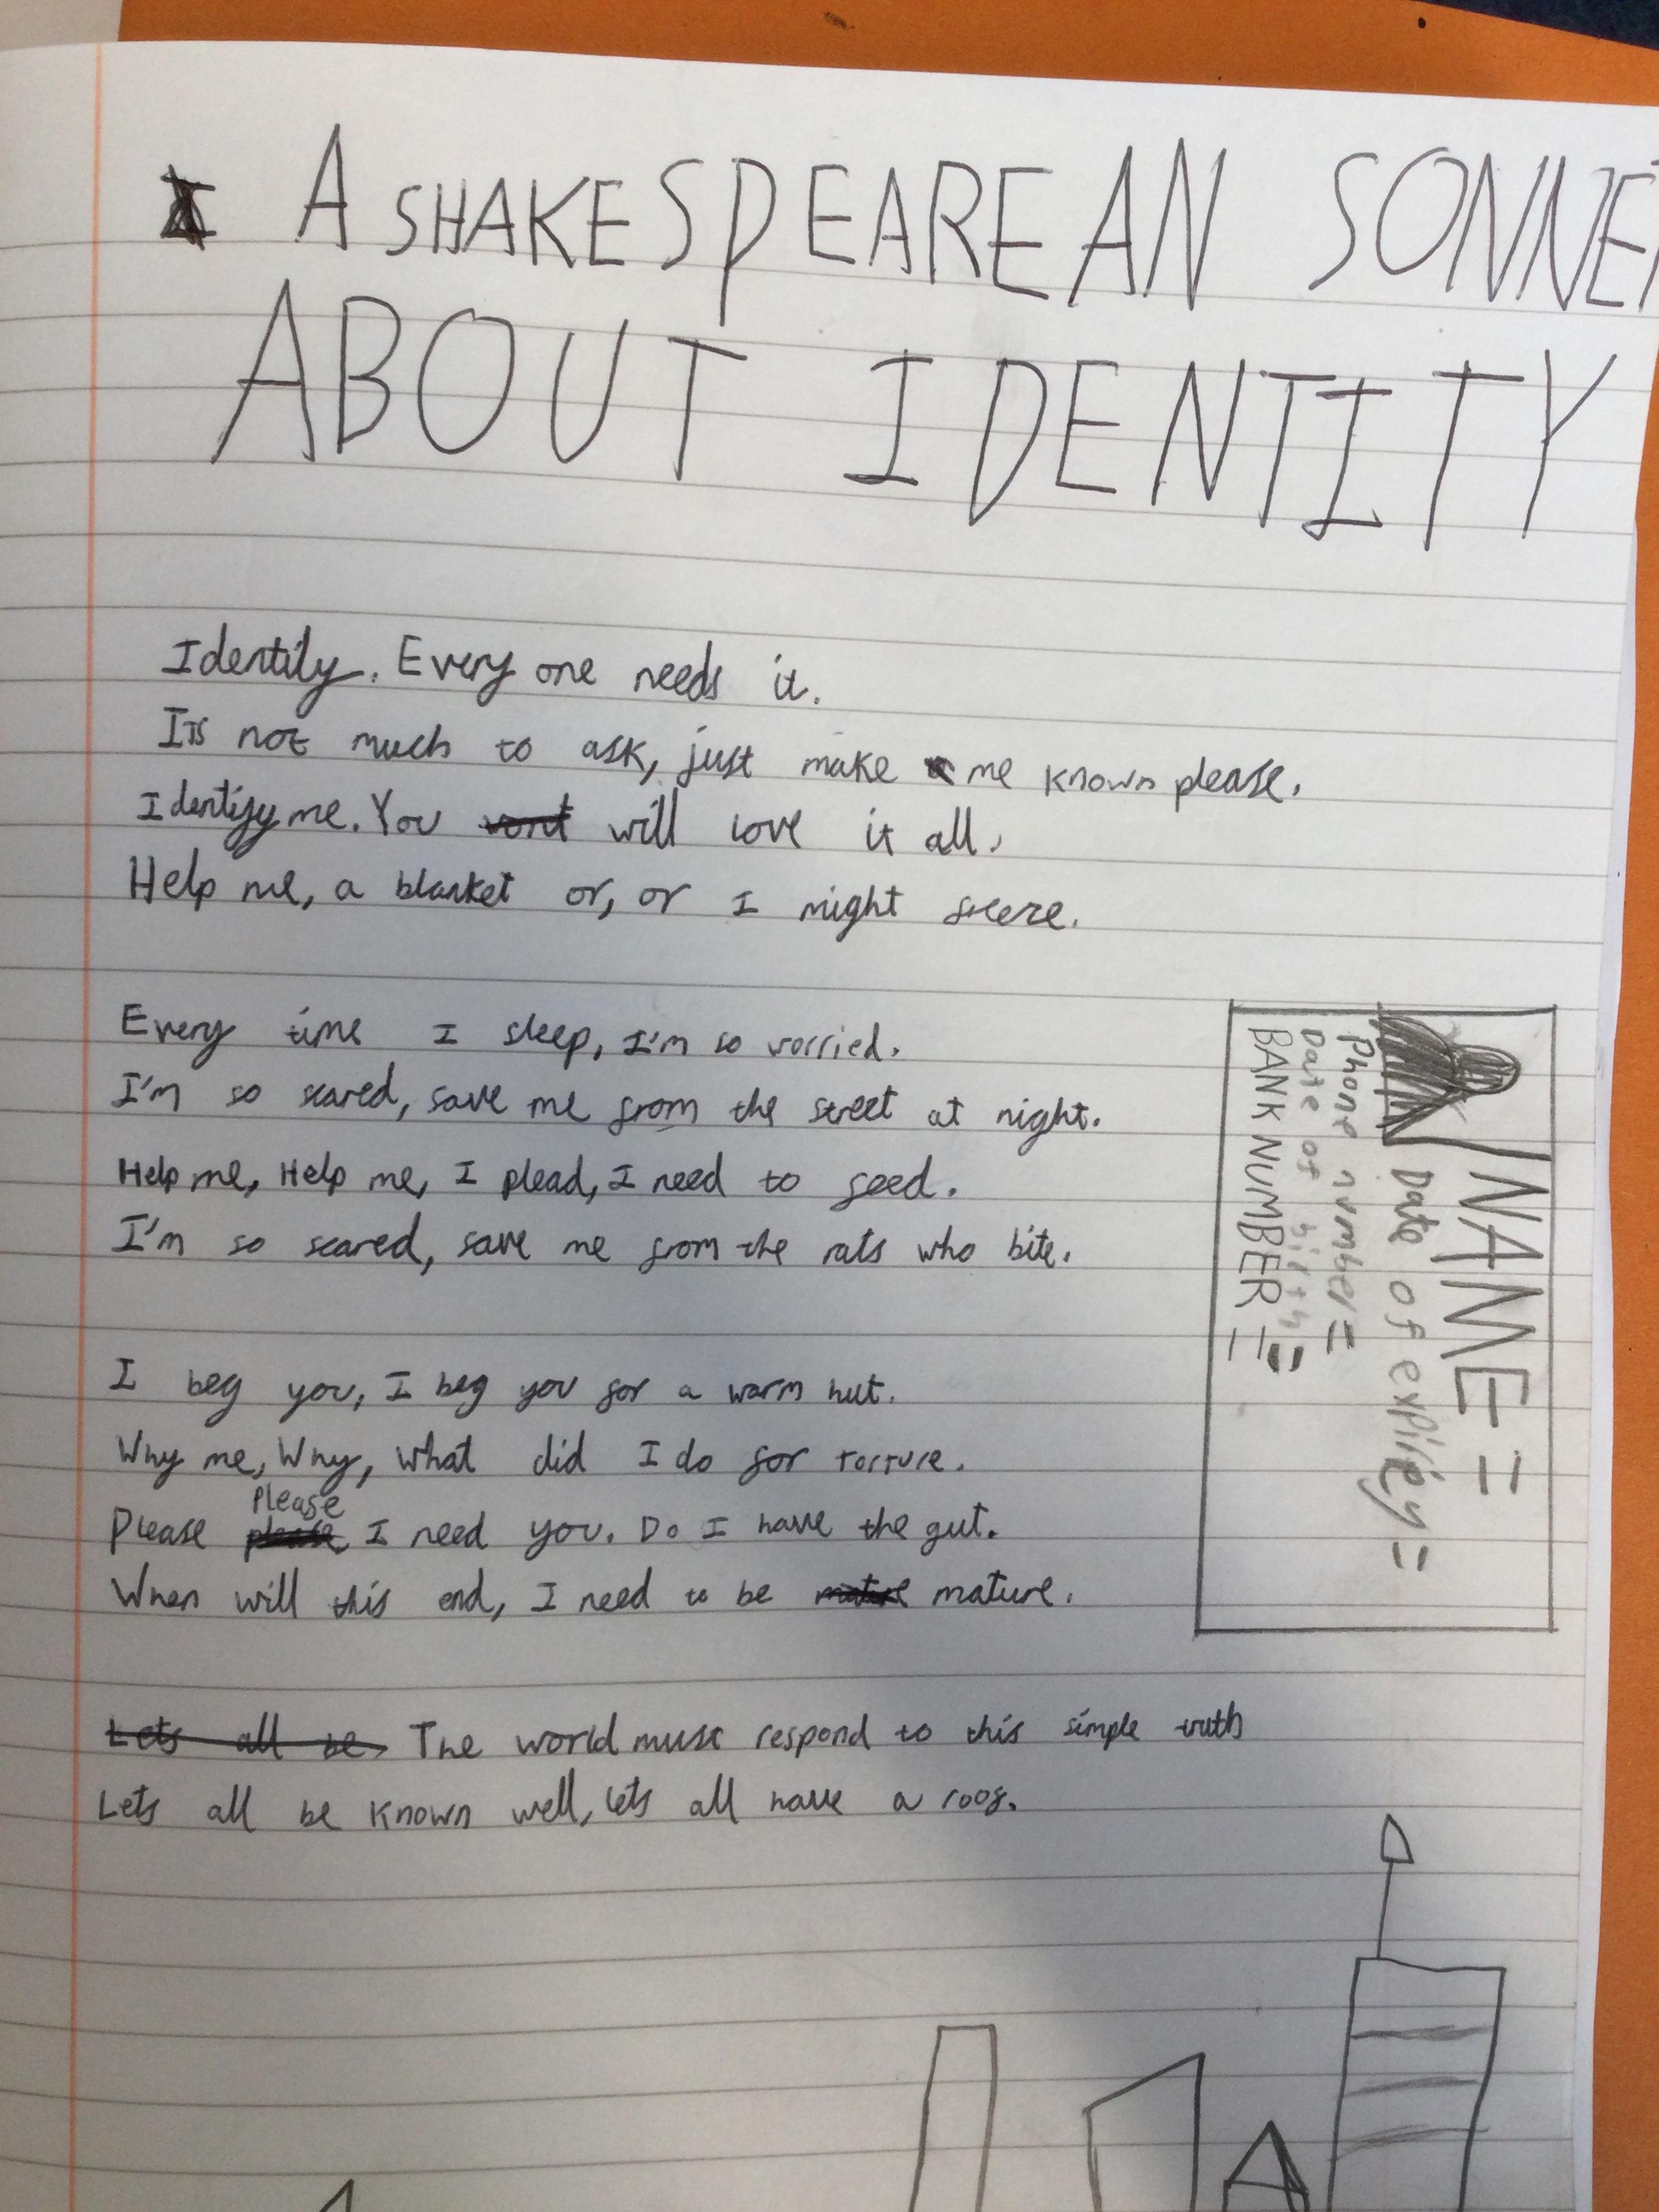 A SHAKESPEAREAN SONNET
ABOUT IDENTITY
Identity. Every one needs it.
Its not much to ask, just make me known please.
Identify me. You wont will love it all.
Help me, a blanket or, or I might freeze.
Every time I sleep, I'm so worried.
I'm so scared, save me from the street at night.
Help me, Help me, I plead, I need to feed.
I'm so scared, save me from the rats who bite.
I beg you, I beg you for a warm hut.
Why me, Why, what did I do for torture.
Please please Please I need you. Do I have the gut.
When will this end, I need to be mature mature.
Lets all be, The world must respond to this simple truth
Lets all be known well, lets all have a roof.
NAME =
Date of expirey =
Phone number =
Date of birth =
BANK NUMBER =